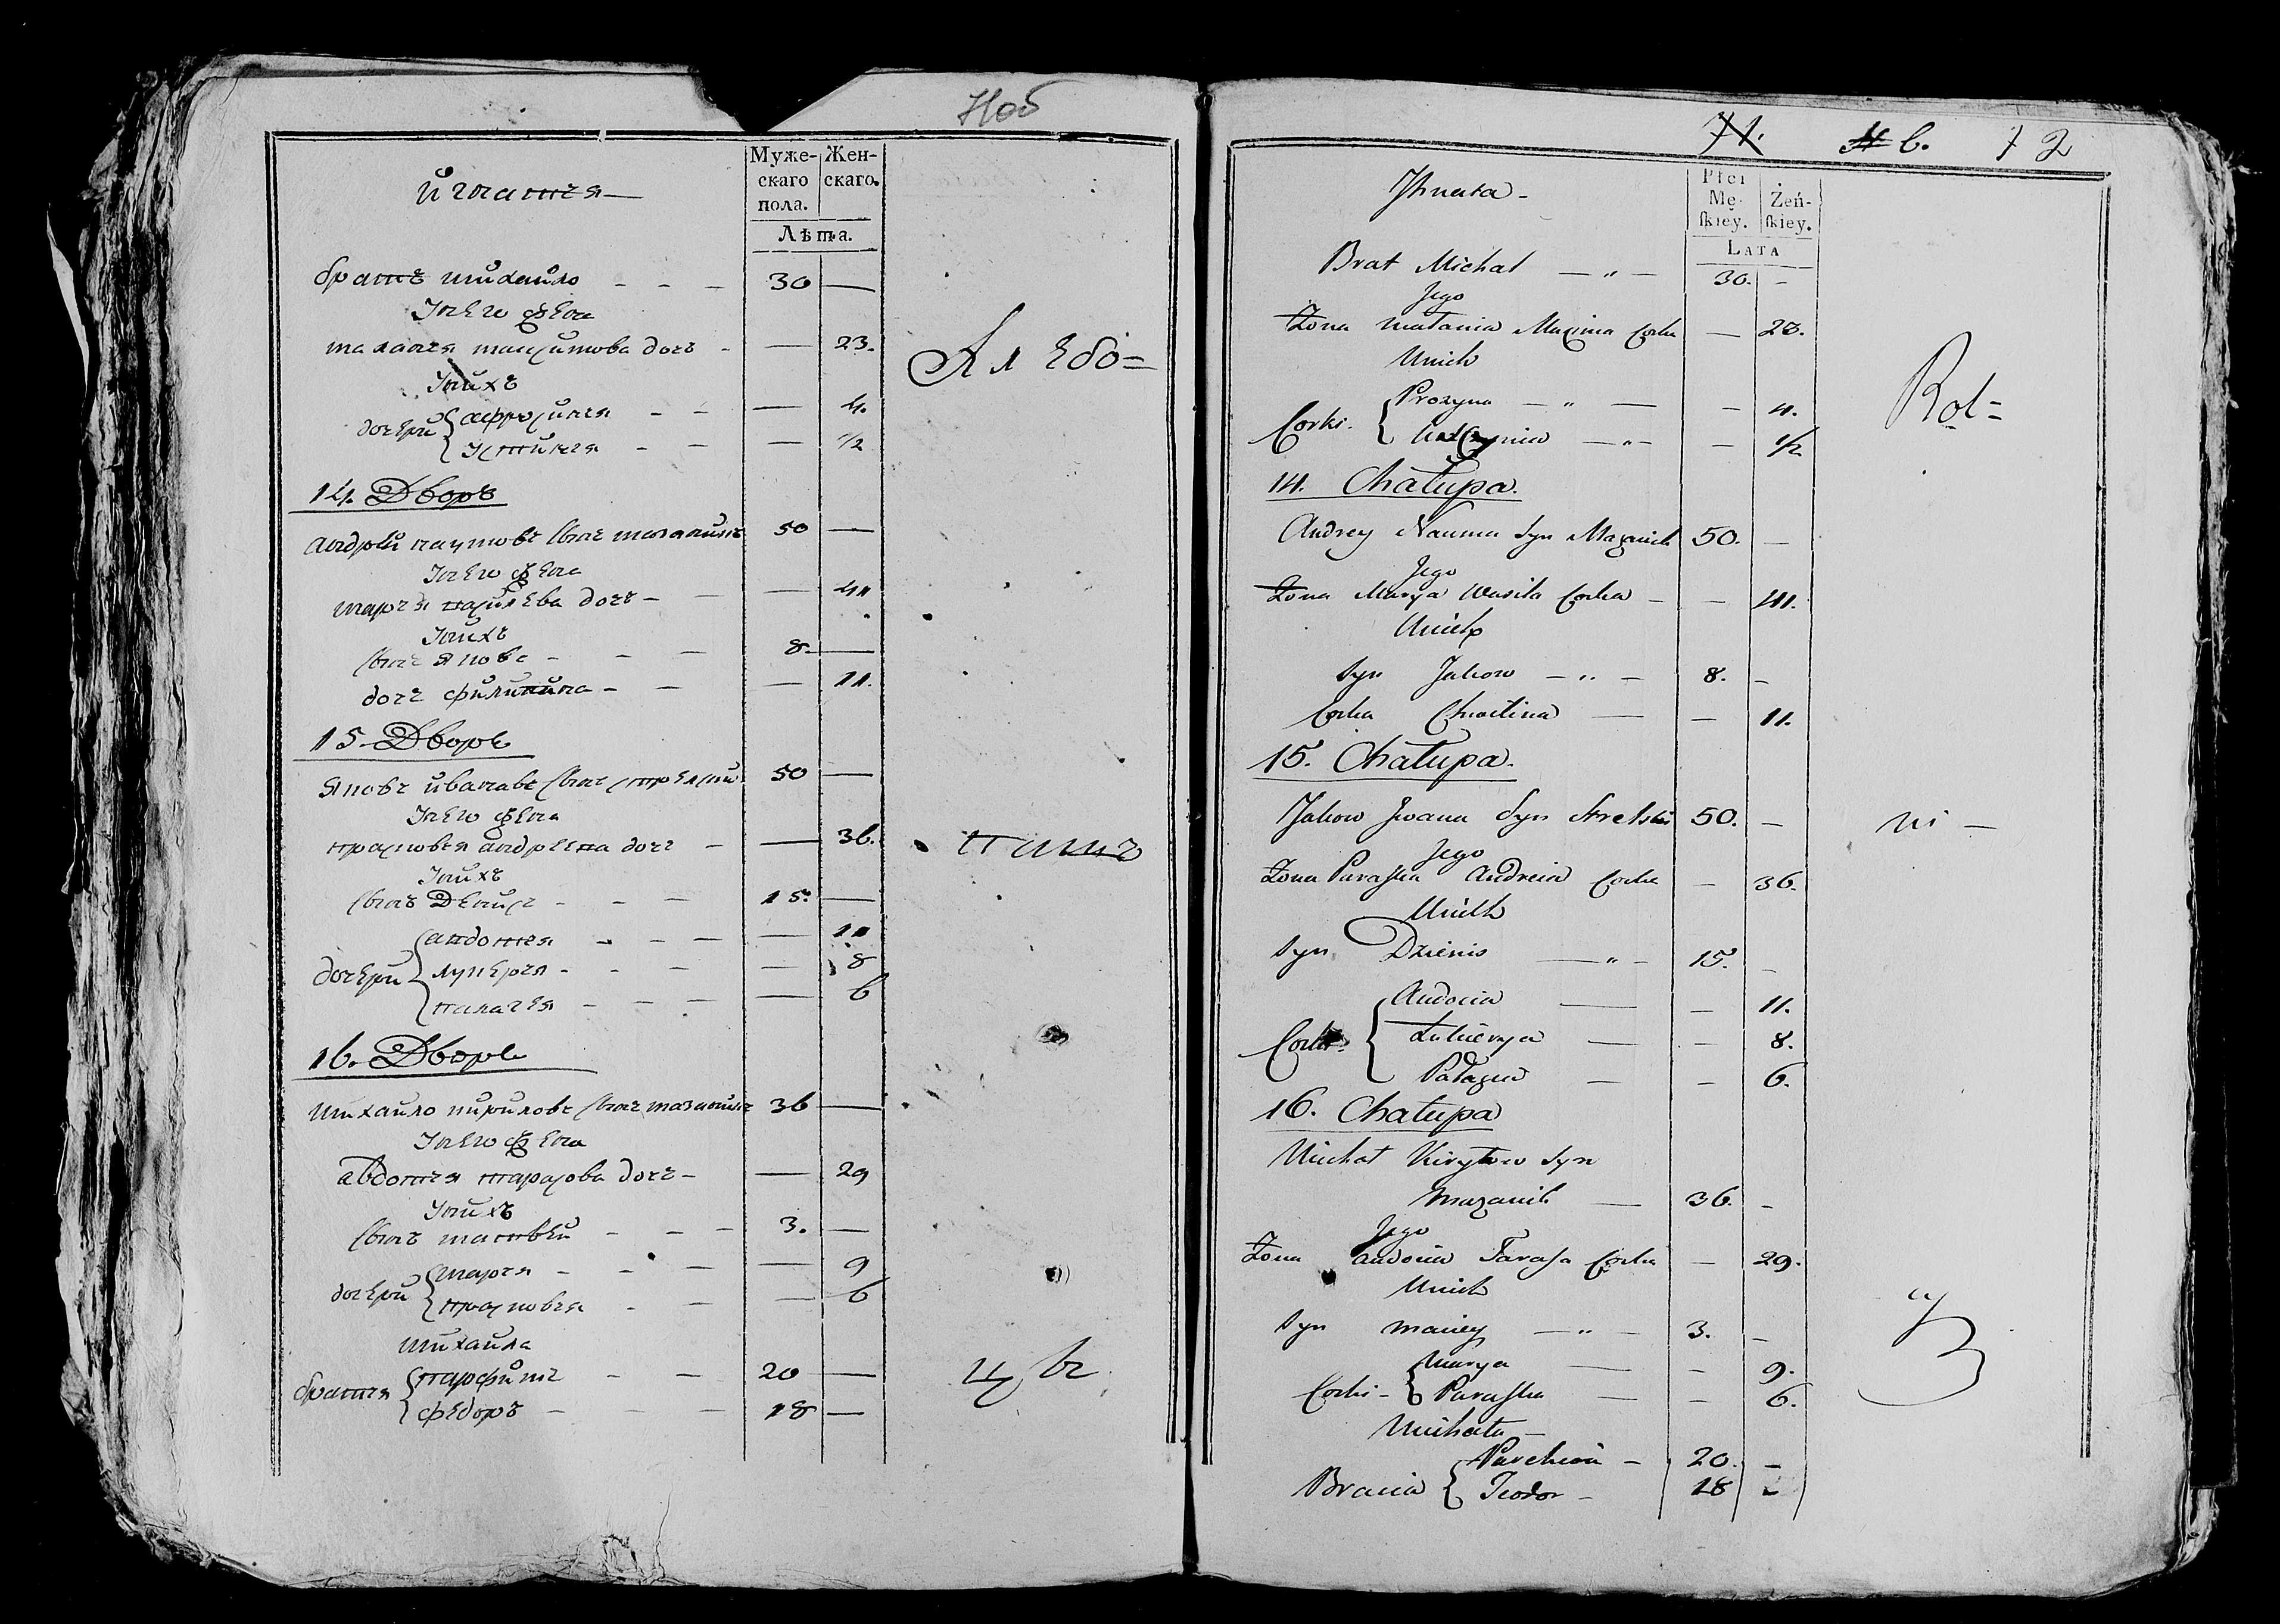 Муже-
скаго
пола.
Жен-
скаго.
Лѣта.
Игнатія —
братъ михайло - - - 30 —
Унего жена
маланія максимова дочь - — 23.
Унихъ
дочери { афросинія - - — 4.
устинія - - — 1/2
14. Дворъ
андрей наумовъ сынъ мазаникъ 50 —
Унего жена
марья василева дочь - - — 41
Унихъ
сынъ яковъ - - - 8. —
дочь филипина - - — 11.
15. Дворъ
яковъ ивановъ сынъ 50 —
Унего жена
прасковья андреева дочь - — 36.
Унихъ
сынъ Денисъ - - - 15. —
дочери { авдотія - - - — 11
лукерія - - - — 8
палагея - - - — 6
16. Дворъ
михайло кириловъ сынъ мазаникъ 36 —
Унего жена
авдотія тарасова дочь - — 29
Унихъ
сынъ матвей - - - 3. —
дочери { марія - - - — 9
прасковья - - — 6
михайла
братія { парфимъ - - 20 —
федоръ - - - 18 —
71. 6. 72
Płci
Mę-
ſkiey.
Żeń-
ſkiey.
LATA
Ihnata -
Brat Michał — „ — 30. -
Jego
Żona Małania Maxima Corka — 23.
Unich
Corki. { Prozyna — „ — - 4.
— „ — - 1/2
14. Chałupa.
Andrey Nauma Syn Mazanik 50. —
Jego
Żona Marya Wasila Corka - — 41.
Unich
Syn Jakow — „ — 8. -
Corka Chwetina — - 11.
15. Chałupa.
Jakow Jwana Syn Strelski 50. —
Jego
Żona Paraſka Andreia Corka - 36.
Unich
Syn Dzienis — „ — 15. -
Corki { Audocia — - 11.
Łukierya — - 8.
Pałagea — - 6.
16. Chałupa
Michał Kiryłow Syn
Mazanik — 36. -
Jego
Żona Audocia Taraſa Corka — 29.
Unich
Syn Maciey — „ — 3. -
Corki - { Marya — - 9.
Paraſka — - 6.
Michała —
Bracia { Parchwim - 20. -
Teodor - 18 -